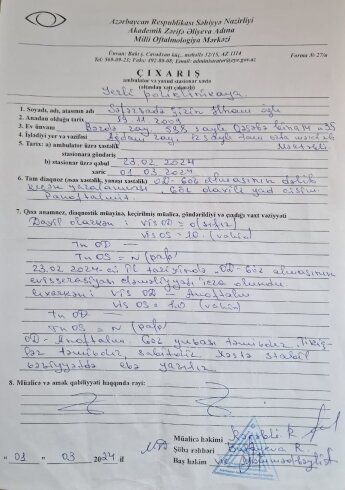 Azərbaycan Respublikası Səhiyyə Nazirliyi
Akademik Zərifə Əliyeva Adına
Milli Oftalmologiya Mərkəzi
Ünvan: Bakı, Cavadxan küç., məhəllə 32/15, AZ 1114
Tel: 569-09-23; Faks: 492-88-08; Email: administrator@eye.gov.az
Forma № 27/ə
ÇIXARIŞ
ambulator və yaxud stasionar xəstə
(altından xətt çəkməli)
Yerli poliklinikaya
1. Soyadı, adı, atasının adı Səfərzadə İlham oğlu
2. Anadan olduğu tarix 19 11 2009
3. Ev ünvanı Bərdə ray, 538 saylı Qəsəbə bina 14 m 35
4. İşlədiyi yer və vəzifəsi ray, saylı tam orta məktəb
5. Tarix: a) ambulator üzrə xəstəlik
stasionara göndəriş
b) stasionar üzrə qəbul 23.02.2024
xaric 01 03 2024
6. Tam diaqnoz (əsas xəstəlik, yanaşı xəstəlik) OD- Göz almasının dəlib
keçən yaralanması. Göz daxili yad cisim
Panoftalmit.
7. Qısa anamnez, diaqnostik müayinə, keçirilmiş müalicə, göndərildiyi və çıxdığı vaxt vəziyyəti
Daxil olarkən: Vis OD = 0 (sıfır)
Vis OS = 1.0 (vahid)
Tn OD —
Tn OS = N (palp)
23.02.2024-cü il tarixində OD- Göz almasının
evisserasiyası əməliyyatı icra olundu.
Çıxarkən: Vis OD = Anoftalm
Vis OS = 1.0 (vahid)
Tn OD —
Tn OS = N (palp)
OD- Anoftalm. Göz yuvası təmizdir. Tikiş-
lər təmizdir, sabitdir. Xəstə stabil
vəziyyətdə evə yazılır.
8. Müalicə və əmək qabiliyyəti haqqında rəyi:
Müalicə həkimi
Şöbə rəhbəri
Baş həkim
"01" 03 2024 il